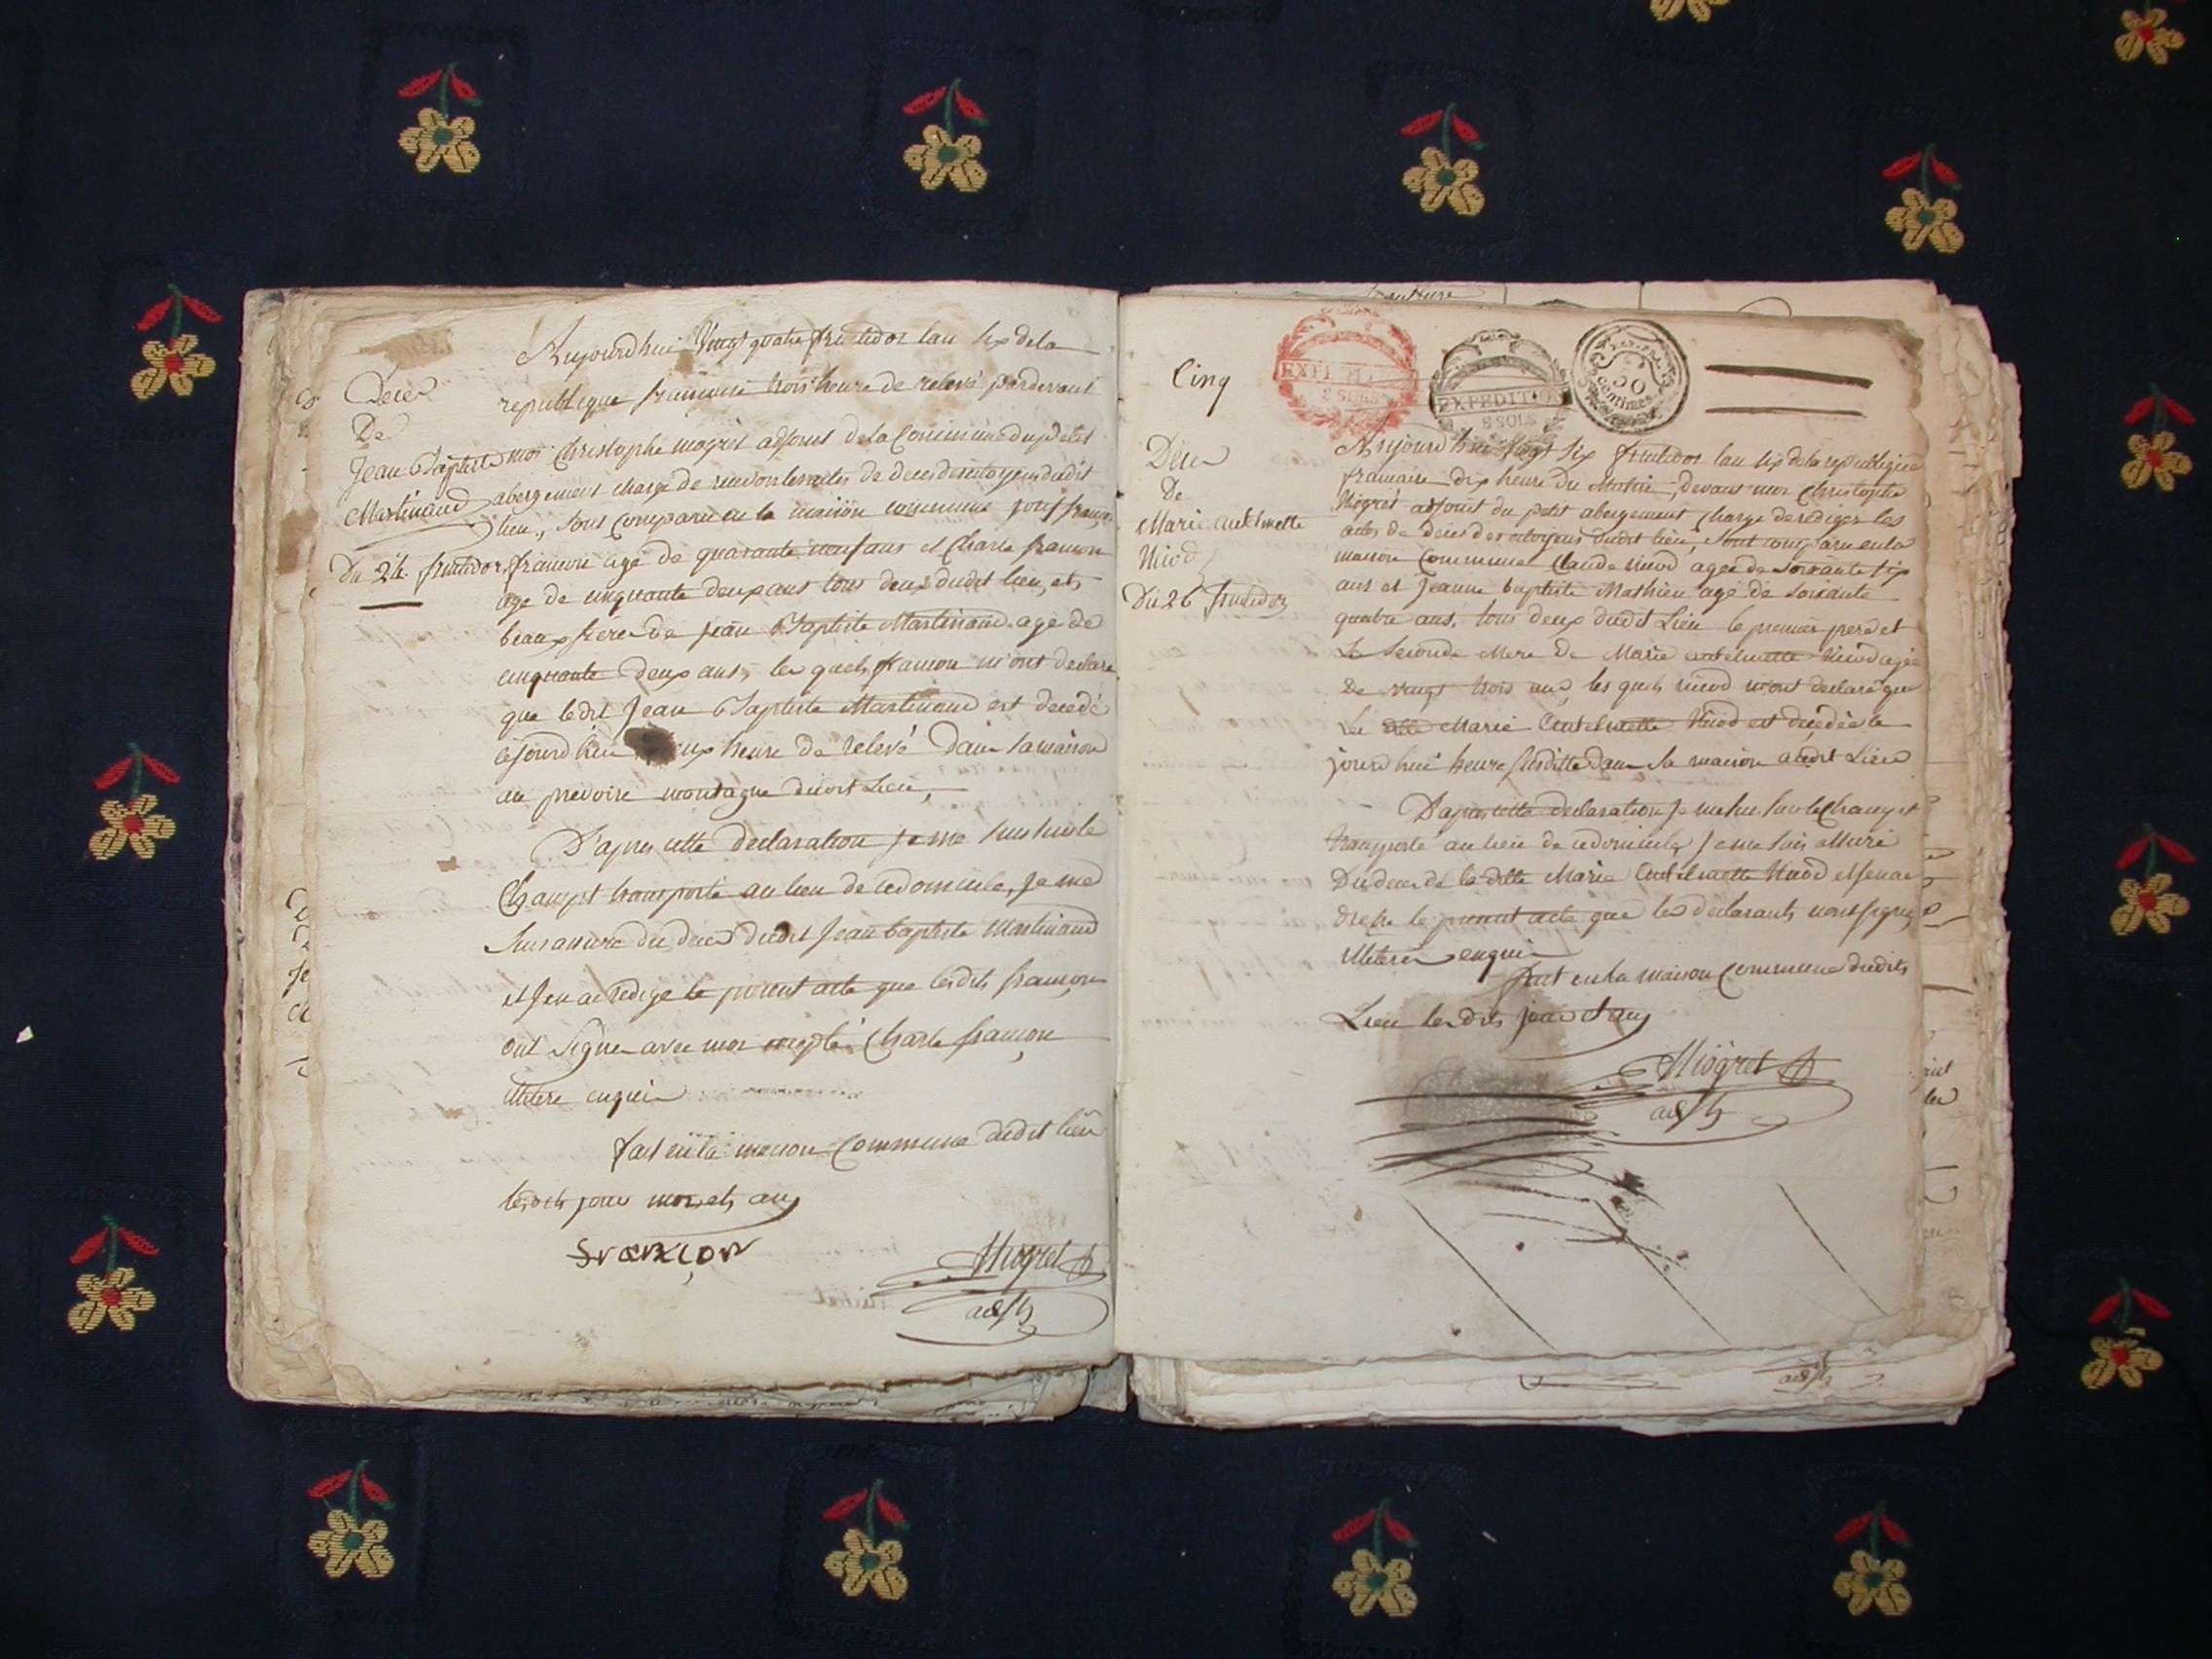 Aujourdhui vingt quatre fructidor lan six de la
Deces republique francaise trois heure de relevé pardevant
De
Jean Baptiste moi Christophe mogret adjoint de la Commune du petit
Martinand abergement charge de recevoir les actes de deces des citoyens dudit
lieu, sont comparu en la maison commune
Du 24 fructidor françon agé de quarante neuf ans et Charle françon
age de cinquante deux ans tous deux dudit lieu, et
beaux freres de jean Baptiste Martinand age de
cinquante deux ans, les quels françon m'ont declare
que ledit Jean Baptiste Martinand est decedé
cejourdhui heure de relevé dans sa maison
au montagne dudit Lieu,
D'apres cette declaration je me suis sur le
Champt transporté au lieu de ce domicile, je me
suis assure du deces dudit Jean baptiste Martinand
et jen ai redige le present acte que lesdits françon
ont signer avec moi excepté Charle françon
illitere enquis
fait en la maison Commune dudit lieu
lesdits jour mois et an
françon
Mogret
adjt
Cinq
EXPEDITION
8 SOLS
50
centimes
Deces
De
Marie
Nicod
Du 26 fructidor
Aujourdhui vingt six fructidor lan six de la republique
francaise dix heure du Matin, devant moi Christophe
Mogret adjoint du petit abergement charge de rediger les
actes de deces des citoyens dudit lieu, sont comparu en la
maison Commune Claude nicod agée de soixante six
ans et Jeanne baptiste Mathieu agé de soixante
quatre ans, tous deux dudit Lieu le premier pere et
La seconde Mere de Marie Nicod agée
De vingt trois ans, les quels nicod m'ont declaré que
La ditte Marie Nicod est decedée ce
jourdhui heure susditte dans sa maison audit Lieu
D'apres cette declaration je me suis sur le Champt
transporté au lieu de ce domicile, je me suis assuré
Du deces de la ditte Marie Nicod et jen ai
le present acte que les declarants nont signé
illiteres enquis
fait en la maison Commune dudit
Lieu lesdits jour et an
Mogret
adjt